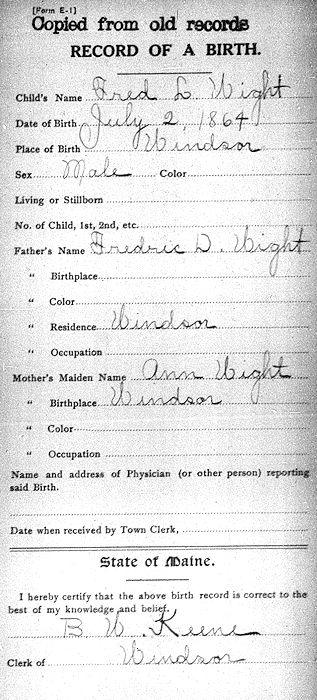 [Form E-1]
Copied from old records
RECORD OF A BIRTH.
Child's Name Fred L Wight
Date of Birth July 2, 1864
Place of Birth Windsor
Sex Male Color
Living or Stillborn
No. of Child, 1st, 2nd, etc.
Father's Name Fredric D. Wight
" Birthplace
" Color
" Residence Windsor
" Occupation
Mother's Maiden Name Ann Wight
" Birthplace Windsor
" Color
" Occupation
Name and address of Physician (or other person) reporting
said Birth.
Date when received by Town Clerk,
State of Maine.
I hereby certify that the above birth record is correct to the
best of my knowledge and belief.
B. W. Keene
Clerk of Windsor